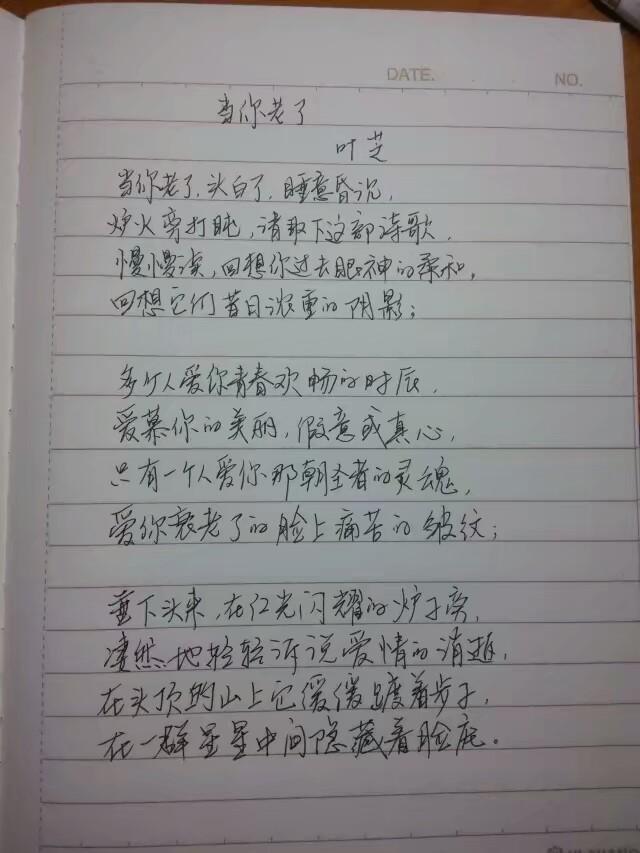 DATE.
NO.
当你老了
叶芝
当你老了,头白了,睡意昏沉,
炉火旁打盹,请取下这部诗歌,
慢慢读,回想你过去眼神的柔和,
回想它们昔日浓重的阴影;
多少人爱你青春欢畅的时辰,
爱慕你的美丽,假意或真心,
只有一个人爱你那朝圣者的灵魂,
爱你衰老了的脸上痛苦的皱纹;
垂下头来,在红光闪耀的炉子旁,
凄然地轻轻诉说爱情的消逝,
在头顶的山上它缓缓踱着步子,
在一群星星中间隐藏着脸庞。